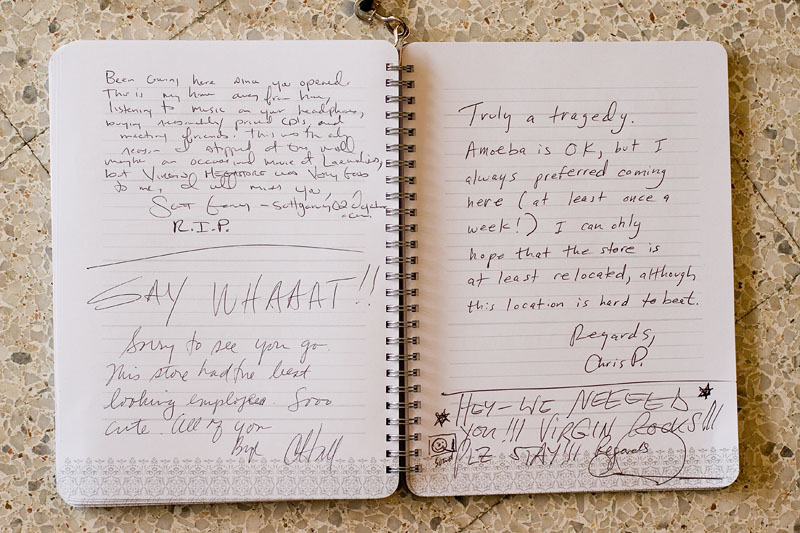 Been coming here since you opened.
This is my home away from home,
listening to music on your headphones,
buying reasonably priced CDs, and
meeting friends! This was the only
reason I stopped at this mall,
maybe an occasional movie at Laemmles,
but Virgin Megastore was very good
to me, I will miss you,
Scott
R.I.P.
SAY WHAAAT!!
Sorry to see you go.
This store had the best
looking employees. Sooo
cute. All of you
Truly a tragedy.
Amoeba is OK, but I
always preferred coming
here (at least once a
week!) I can only
hope that the store is
at least relocated, although
this location is hard to beat.
Regards,
Chris P.
HEY-WE NEEEED
YOU!!! VIRGIN ROCKS!!!
PLZ STAY!!! Regards